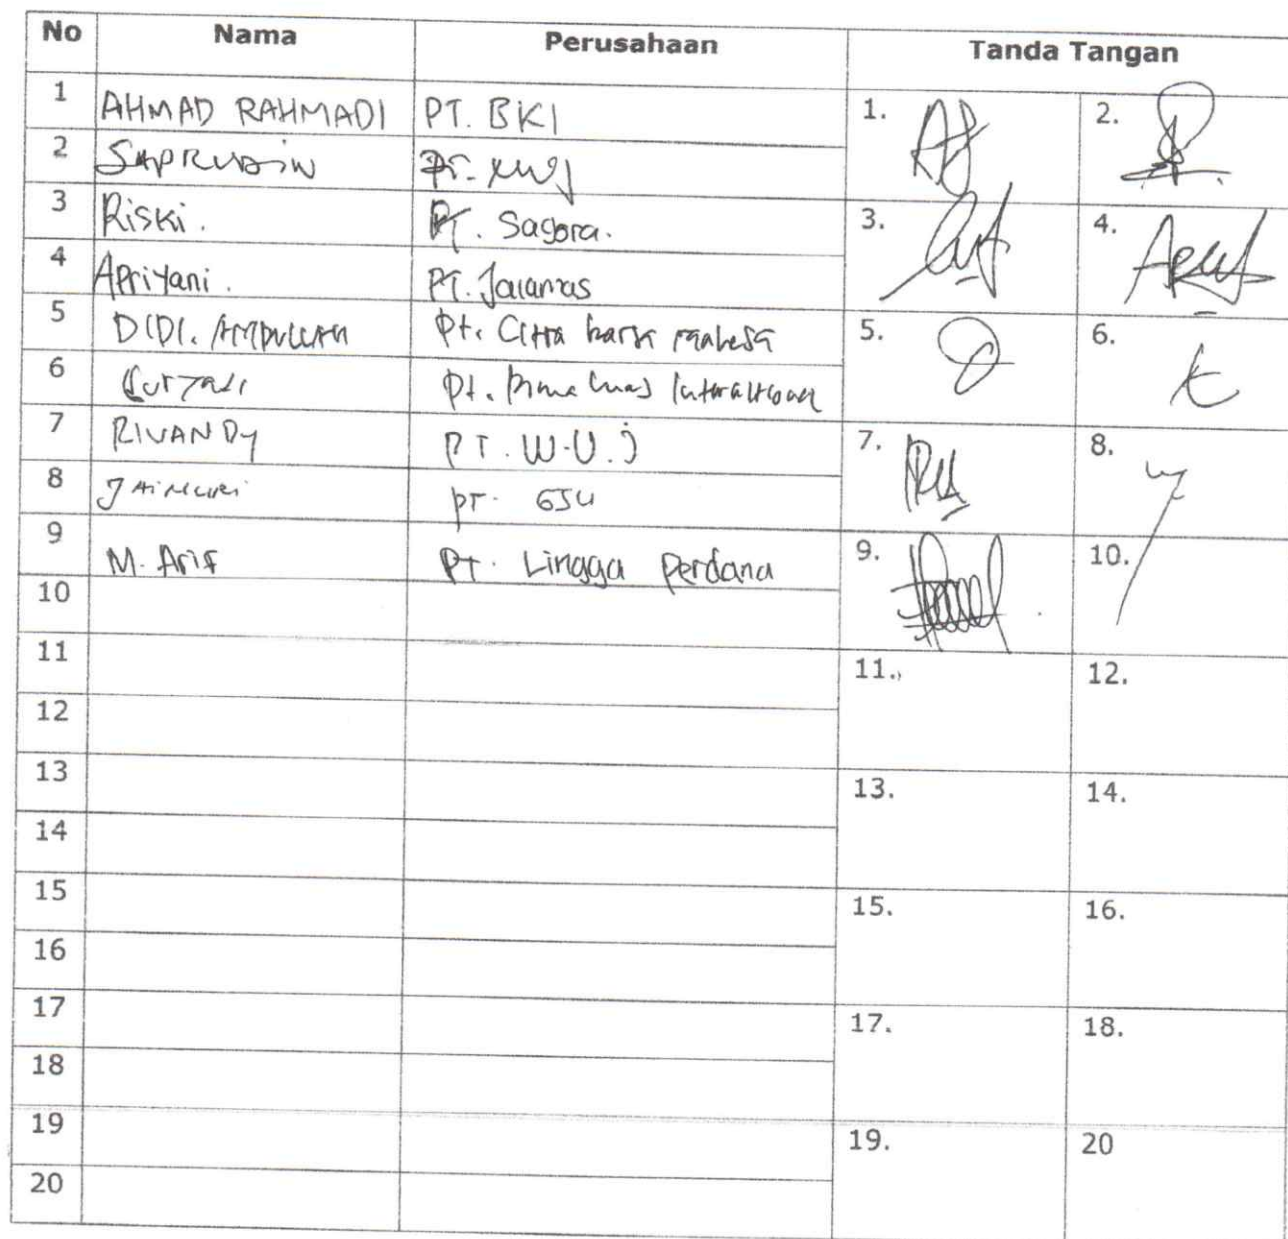 No Nama Perusahaan Tanda Tangan
1 AHMAD RAHMADI PT. BKI 1. 2.
2 SAPRUDIN PT.
3 Riski. PT. Sagora. 3. 4.
4 Apriyani. PT. Jalamas
5 DIDI. Pt. Citra 5. 6.
6 Pt.
7 RIVANDY PT. W.U.J 7. 8.
8 JAINURI PT.
9 M. Arif PT. Lingga Perdana 9. 10.
10
11 11. 12.
12
13 13. 14.
14
15 15. 16.
16
17 17. 18.
18
19 19. 20
20